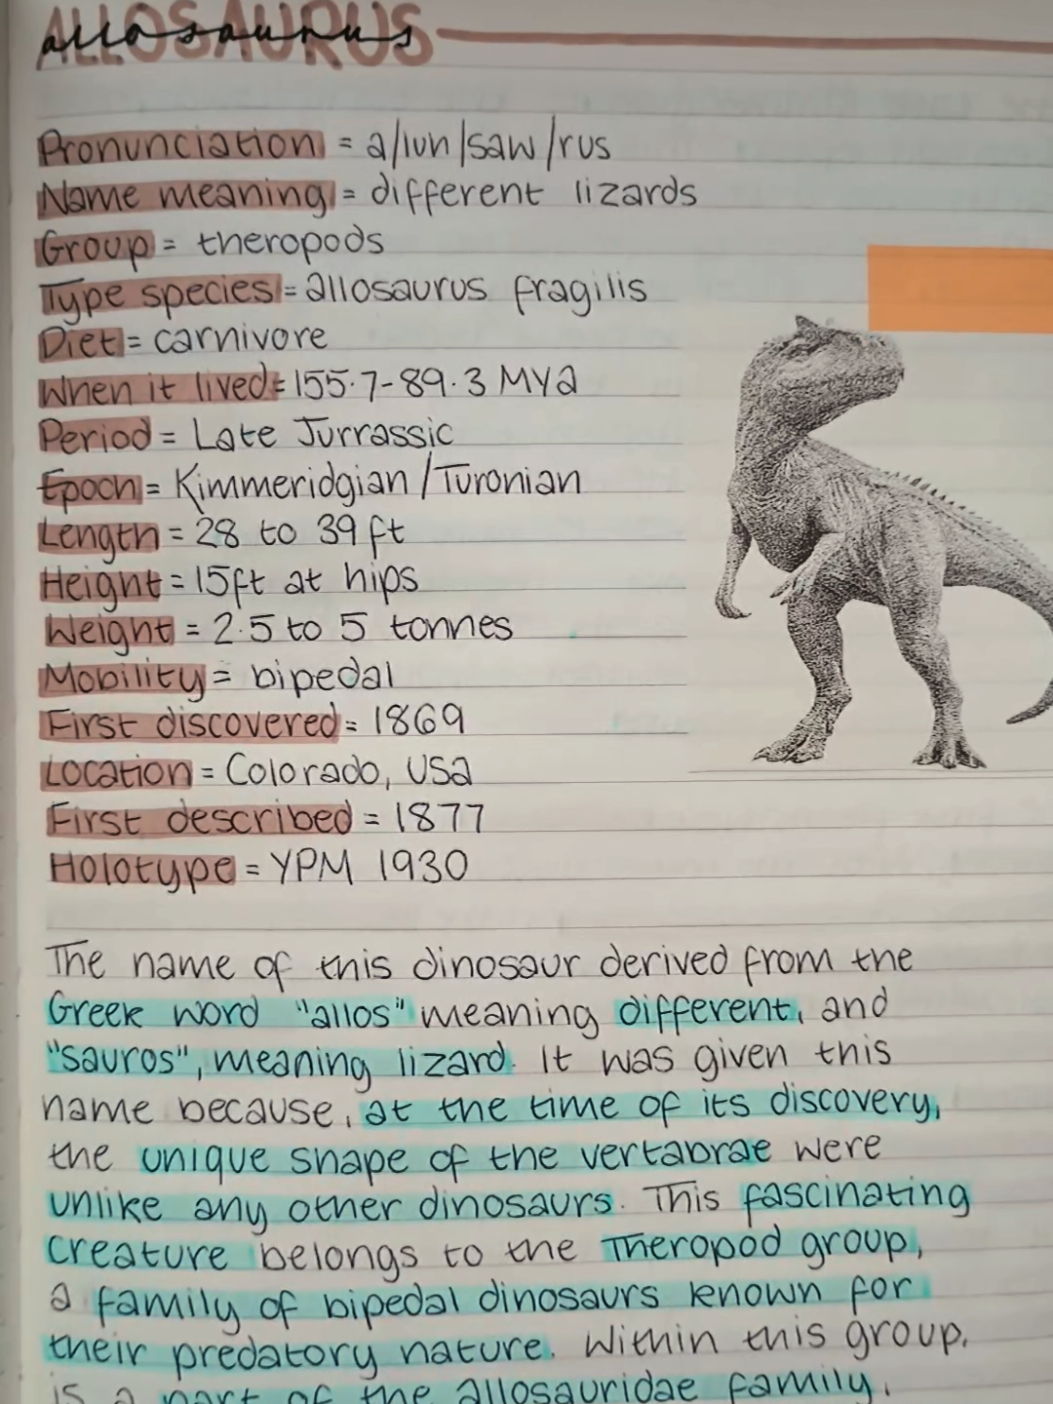 ALLOSAURUS
allosaurus
Pronunciation = a/luh/saw/rus
Name meaning = different lizards
Group = theropods
Type species = allosaurus fragilis
Diet = carnivore
When it lived = 155.7-89.3 MYA
Period = Late Jurrassic
Epoch = Kimmeridgian/Turonian
Length = 28 to 39 ft
Height = 15ft at hips
Weight = 2.5 to 5 tonnes
Mobility = bipedal
First discovered = 1869
Location = Colorado, USA
First described = 1877
Holotype = YPM 1930
The name of this dinosaur derived from the
Greek word "allos" meaning different, and
"sauros", meaning lizard. It was given this
name because, at the time of its discovery,
the unique shape of the vertabrae were
unlike any other dinosaurs. This fascinating
creature belongs to the Theropod group,
a family of bipedal dinosaurs known for
their predatory nature. Within this group,
is a part of the allosauridae family,